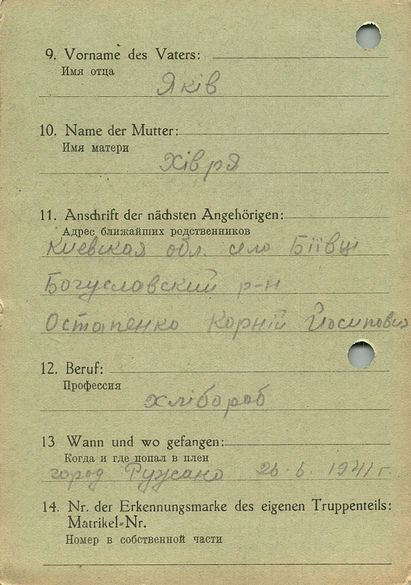 9. Vorname des Vaters:
Имя отца
Яків
10. Name der Mutter:
Имя матери
Хівря
11. Anschrift der nächsten Angehörigen:
Адрес ближайших родственников
Киевская обл. село Біївці
Богуславский р-н
Остапенко Корній Йосипович
12. Beruf:
Профессия
хлібороб
13 Wann und wo gefangen:
Когда и где попал в плен
город Ружано 26. 6. 1941 г.
14. Nr. der Erkennungsmarke des eigenen Truppenteils:
Matrikel-Nr.
Номер в собственной части